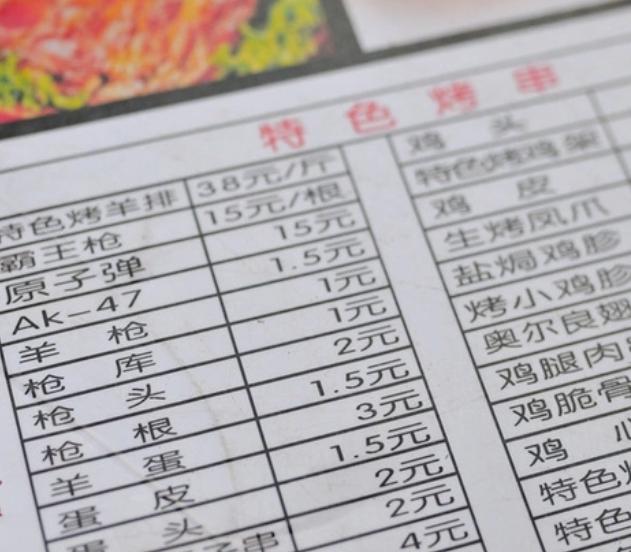 特色烤串
特色烤羊排 38元/斤
霸王枪 15元/根
原子弹 15元
AK-47 1.5元
羊枪 1元
枪库 1元
枪头 2元
枪根 1.5元
羊蛋 3元
蛋皮 1.5元
蛋头 2元
子串 2元
4元
鸡头
特色烤鸡架
鸡皮
生烤凤爪
盐焗鸡胗
烤小鸡胗
奥尔良翅
鸡腿肉
鸡脆骨
鸡心
特色
特色